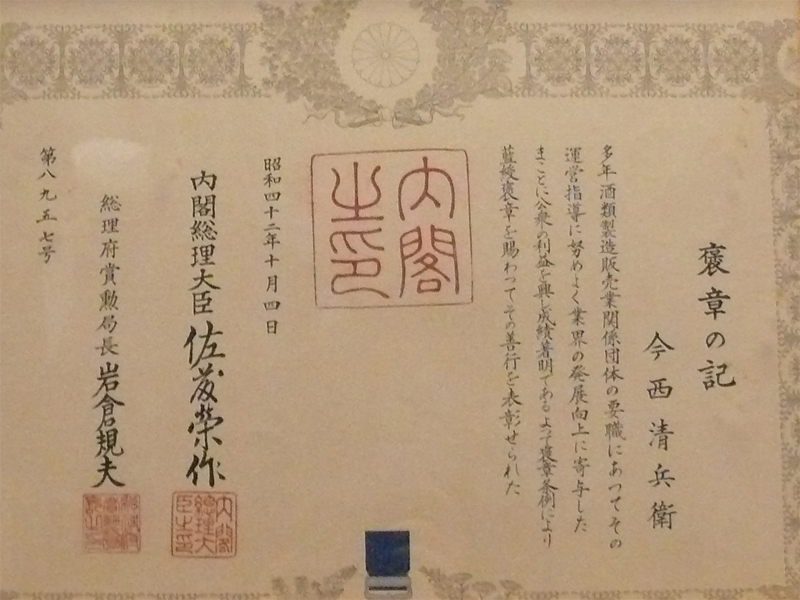 褒章の記
今西清兵衛
多年酒類製造販売業関係団体の要職にあつてその
運営指導に努めよく業界の発展向上に寄与した
まことに公衆の利益を興し成績著明であるよつて褒章条例により
藍綬褒章を賜わつてその善行を表彰せられた
内閣
之印
昭和四十二年十月四日
内閣総理大臣 佐藤榮作
内閣
総理大
臣之印
総理府賞勲局長 岩倉規夫
第八九五七号